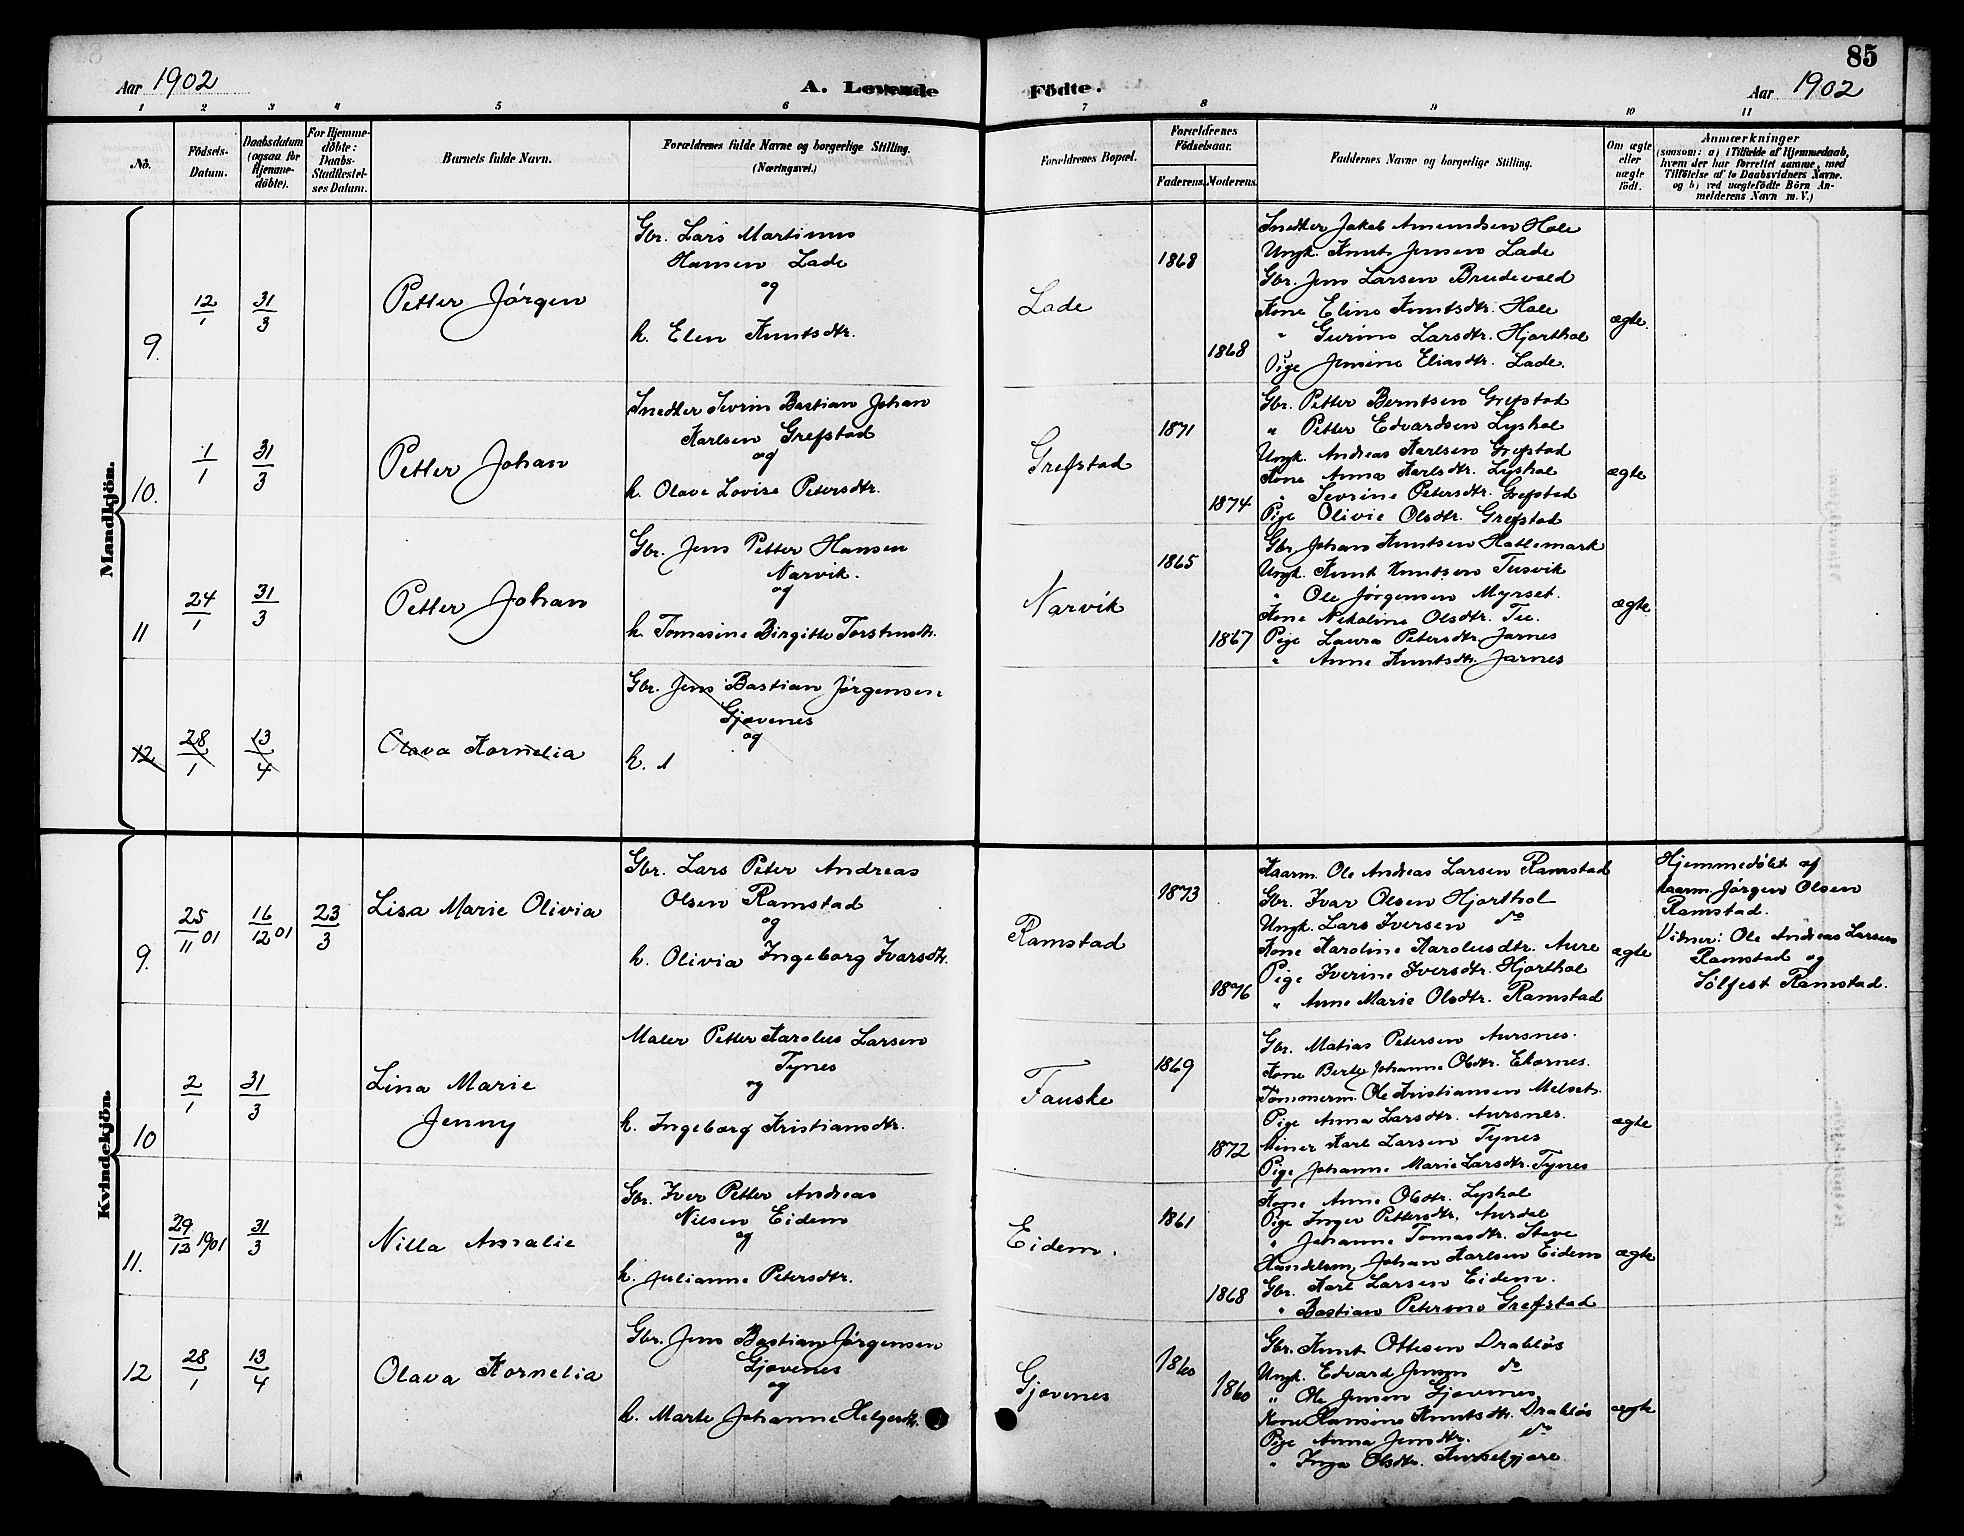 85
Aar 1902
A. Levende
Födte.
Aar 1902
1 2 3 4 5 6 7 8 9 10 11
No.
Födsels-
Datum.
Daabsdatum
(ogsaa for
Hjemme-
döbte).
For Hjemme-
döbte:
Daabs-
Stadfæstel-
ses Datum.
Barnets fulde Navn.
Forældrenes fulde Navne og borgerlige Stilling.
(Næringsvei.)
Forældrenes Bopæl.
Forældrenes
Födselsaar.
Faderens.
Moderens.
Faddernes Navne og borgerlige Stilling.
Om ægte
eller
uægte
födt.
Anmærkninger
(saasom: a) i Tilfælde af Hjemmedaab,
hvem der har forrettet samme, med
Tilföielse af to Daabsvidners Navne.
og b) ved uægtefödte Börn An-
melderens Navn m. V.)
Mandkjön.
9.
12/1
31/3
Petter Jørgen
Gbr. Lars Martinus
Hansen Lade
og
h. Elen Knutsdtr.
Lade
1868
1868
Snedker Jakob Amundsen Hole
Ungk. Knut Jensen Lade
Gbr. Jens Larsen Brudevold
Kone Eline Knutsdtr. Hole
" Gurine Larsdtr. Hjorthol
Pige Jensine Eliasdtr. Lade.
ægte.
10.
1/1
31/3
Petter Johan
Snedker Sevrin Bastian Johan
Karlsen Grefstad
og
h. Olave Lovise Petersdtr.
Grefstad
1871
1874
Gbr. Petter Berntsen Grefstad
" Petter Edvardsen Lyshol
Ungk. Andreas Karlsen Grefstad
Kone Anna Karlsdtr. Lyshol
" Sevrine Petersdtr. Grefstad
Pige Olivie Olsdtr. Grefstad
ægte
11
24/1
31/3
Petter Johan
Gbr. Jens Petter Hansen
Narvik.
og
h. Tomasine Birgitte Torstensdtr.
Narvik
1865
1867
Gbr. Johan Knutsen Hatlemark
Ungk. Knut Knutsen Tusvik
" Ole Jørgensen Myrset.
Kone Nikoline Olsdtr. Tu.
Pige Laura Petersdtr. Jarnes
" Anne Knutsdtr. Jarnes
ægte
12
28/1
13/4
Olava Kornelia
Gbr. Jens Bastian Jørgensen
Gjævenes
og
h.
Kvindekjön.
9.
25/11 01
16/12 01
23/3
Lisa Marie Olivia
Gbr. Lars Peter Andreas
Olsen Ramstad
og
h. Olivia Ingeborg Ivarsdtr.
Ramstad
1873
1876
Kaarm. Ole Andreas Larsen Ramstad
Gbr. Ivar Olsen Hjorthol
Ungk. Lars Iversen do
Kone Karoline Karolusdtr. Aure
Pige Iverine Iversdtr. Hjorthol
" Anne Marie Olsdtr. Ramstad
ægte
Hjemmedøbt af
Kaarm. Jørgen Olsen
Ramstad.
Vidner: Ole Andreas Larsen
Ramstad og
Sølfest Ramstad.
10
2/1
31/3
Lina Marie
Jenny
Maler Petter Karolus Larsen
Tynes
og
h. Ingeborg Kristiansdtr.
Fauske
1869
1872
Gbr. Matias Petersen Aursnes.
Kone Berte Johanne Olsdtr. Ekornes.
Tømmerm. Ole Kristiansen Melset.
Pige Anna Larsdtr. Aursnes.
Miner Karl Larsen Tynes
Pige Johanne Marie Larsdtr. Tynes
ægte
11.
29/12 1901
31/3
Nilla Amalie
Gbr. Iver Petter Andreas
Nilsen Eidem
og
h. Julianne Petersdtr.
Eidem.
1861
1868
Kone Anne Olsdtr. Lyshol
Pige Inger Pettersdtr. Aurdal
" Johanne Tomasdtr. Stave
Handelsm. Johan Karlsen Eidem
Gbr. Karl Larsen Eidem.
" Bastian Petersen Grefstad
ægte
12
28/1
13/4
Olava Kornelia
Gbr. Jens Bastian Jørgensen
Gjævenes
og
h. Marte Johanne Helgesdtr.
Gjævenes
1860
1860
Gbr. Knut Ottesen Drabløs
Ungk. Edvard Jensen do
" Ole Jensen Gjævenes
Kone Hansine Knutsdtr. Drabløs
Pige Anna Jensdtr. do
" Inga Olsdtr.
ægte